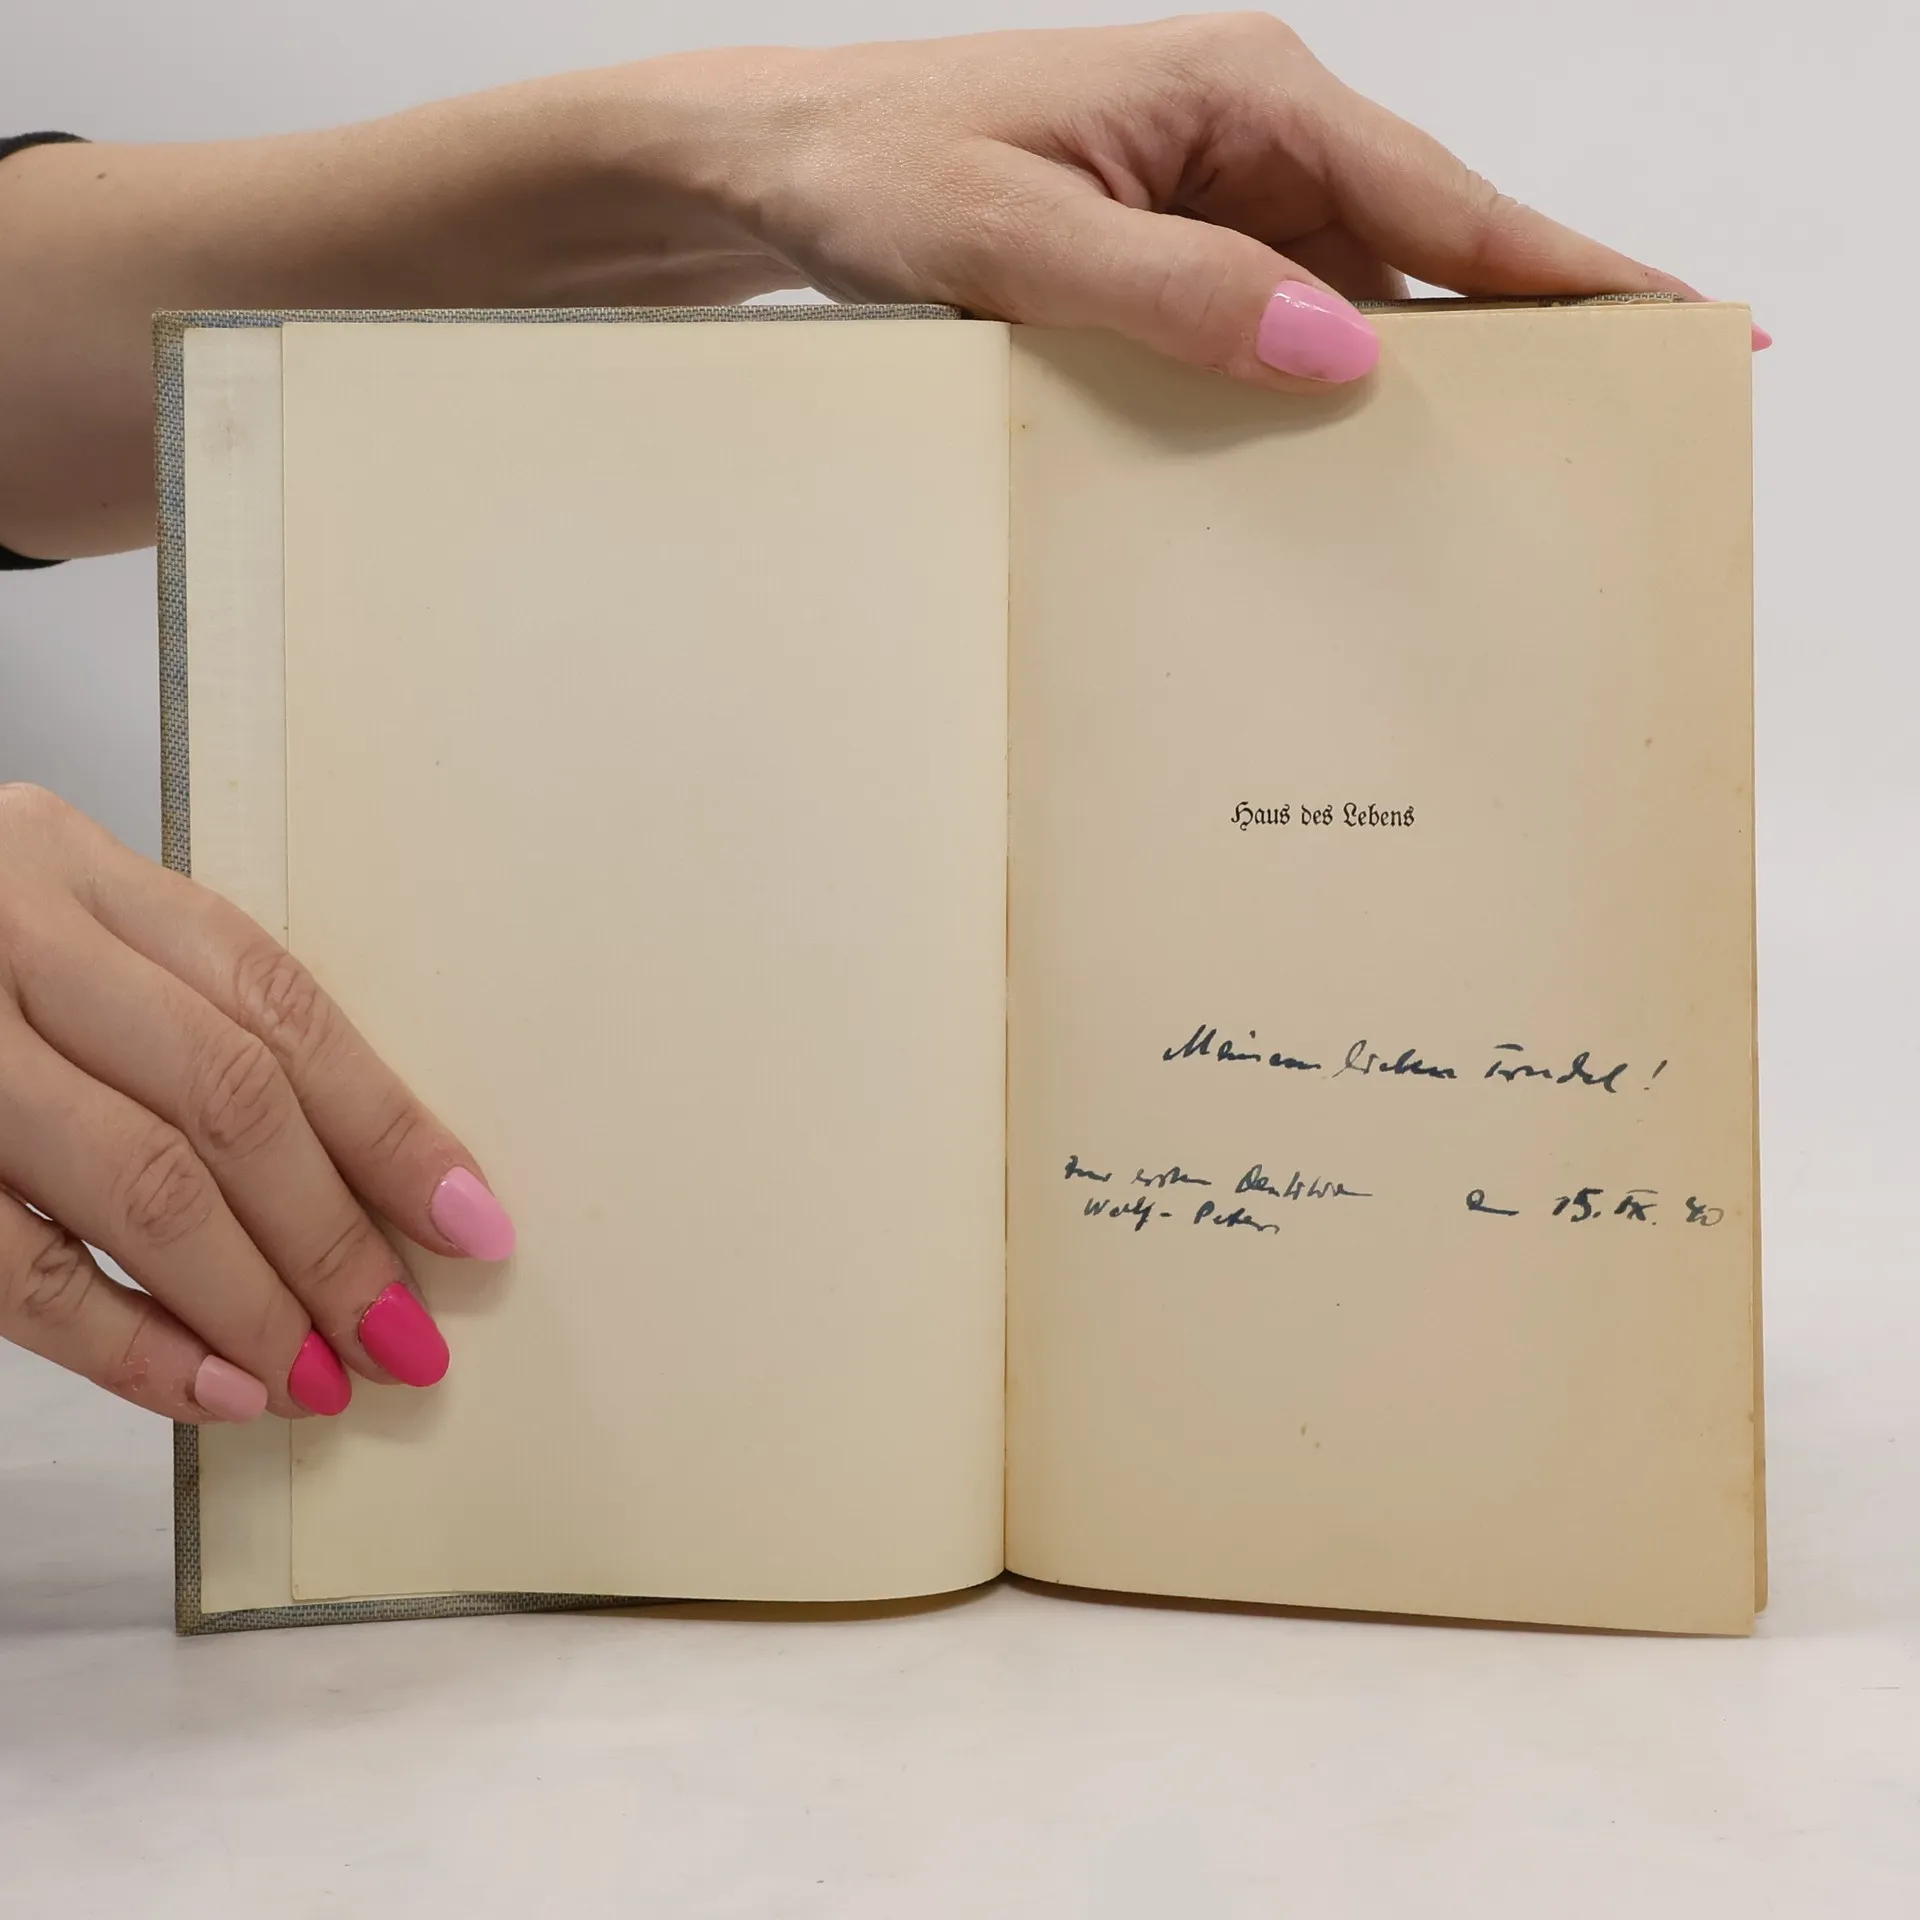 Haus des Lebens
Meinem lieben Trudel!
Zur ersten
Wolf-Peters
am 15. IX. 40